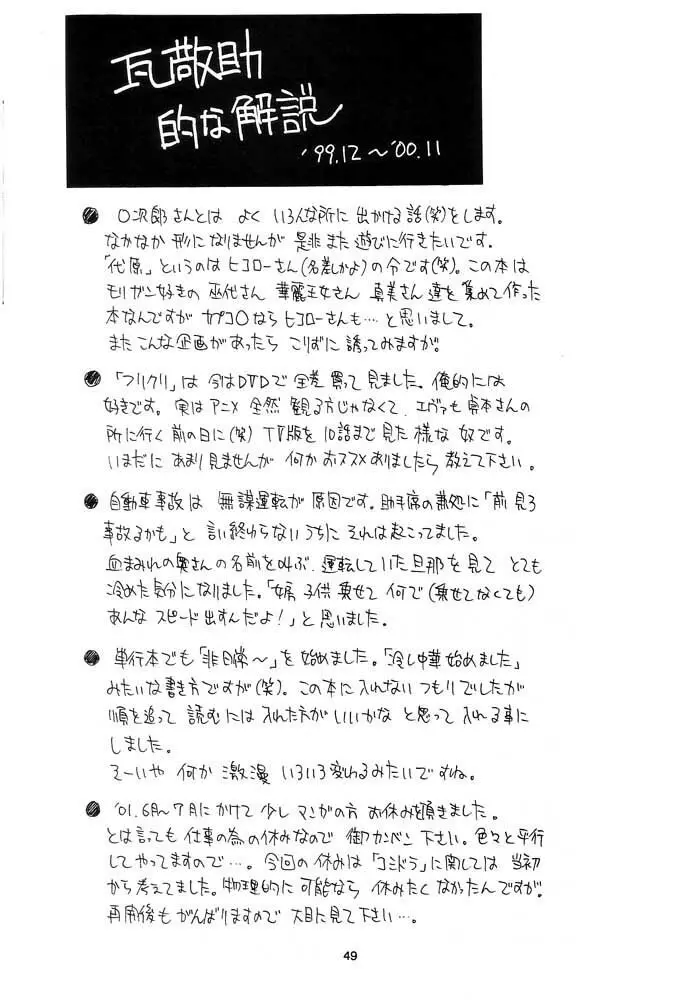 瓦敬助
的な解説
'99.12〜'00.11
● ○次郎さんとは よく いろんな所に 出かける話(笑)をします。
なかなか 形になりませんが 是非 また 遊びに行きたいです。
「代原」というのは ヒコローさん(名差しかよ)の令です(笑)。この本は
モリガン好きの 巫代さん 華麗王女さん 真美さん達を集めて作った
本なんですが カプコ○なら ヒコローさんも…と思いまして。
またこんな企画があったら こりずに 誘ってみますが。
● 「フリクリ」は 今はDVDで 全差 買って 見ました。俺的には
好きです。実は アニメ 全然 観る方じゃなくて、エヴァも 貞本さんの
所に行く 前の日に(笑) TV版を 10話まで 見た 様な 奴です。
いまだに あまり見ませんが 何か おススメ ありましたら 教えて下さい。
● 自動車事故は 無謀運転が 原因です。助手席の 「前見ろ
事故るかも」と 言い終わらないうちに それは起こってました。
血まみれの奥さんの名前を叫ぶ、運転していた旦那を見て とても
冷めた気分になりました。「嫁 子供 乗せて 何で(乗せてなくても)
あんな スピード 出すんだよ!」と 思いました。
● 単行本でも「非日常〜」を 始めました。「冷し中華始めました」
みたいな書き方ですが(笑)。この本に入れない つもりでしたが
順を追って 読むには 入れた方が いいかな と思って 入れる事に
しました。
そーいや 何か 激漫 いろいろ変わるみたいですね。
● '01.6月〜7月にかけて 少し マンガの方 お休みを頂きました。
とは言っても 仕事の為の休みなので 御カンベン 下さい。色々と平行
してやってますので…。今回の休みは「コミドラ」に関しては 当初
から考えてました。物理的に可能なら 休みたく なかったんですが。
再開後も がんばりますので 大目に見て下さい…。
49